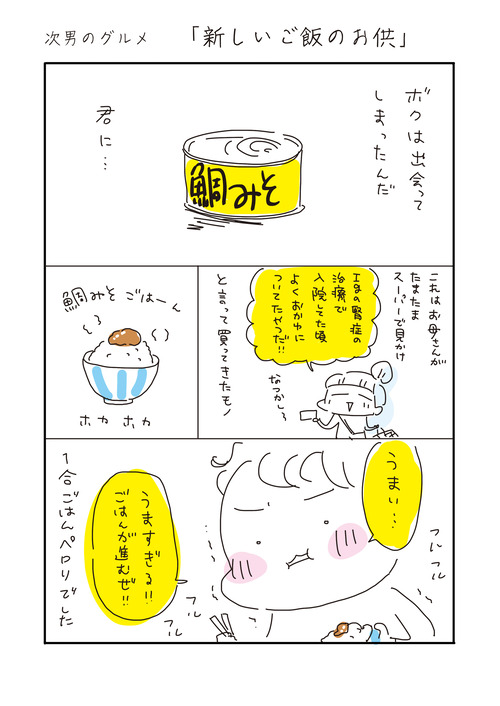 次男のグルメ 「新しいご飯のお供」
ボクは出会って
しまったんだ
君に…
鯛みそ
これはお母さんが
たまたま
スーパーで見かけ
IgA腎症の
治療で
入院してた頃
よくおかゆに
ついてたやつだ!!
なつかし〜
と言って買ってきたモノ
鯛みそ ごはーん
ホカ ホカ
うまい…
フルフル
うますぎる!!
ごはんが進むぜ!!
フル
フル
1合ごはんペロリでした